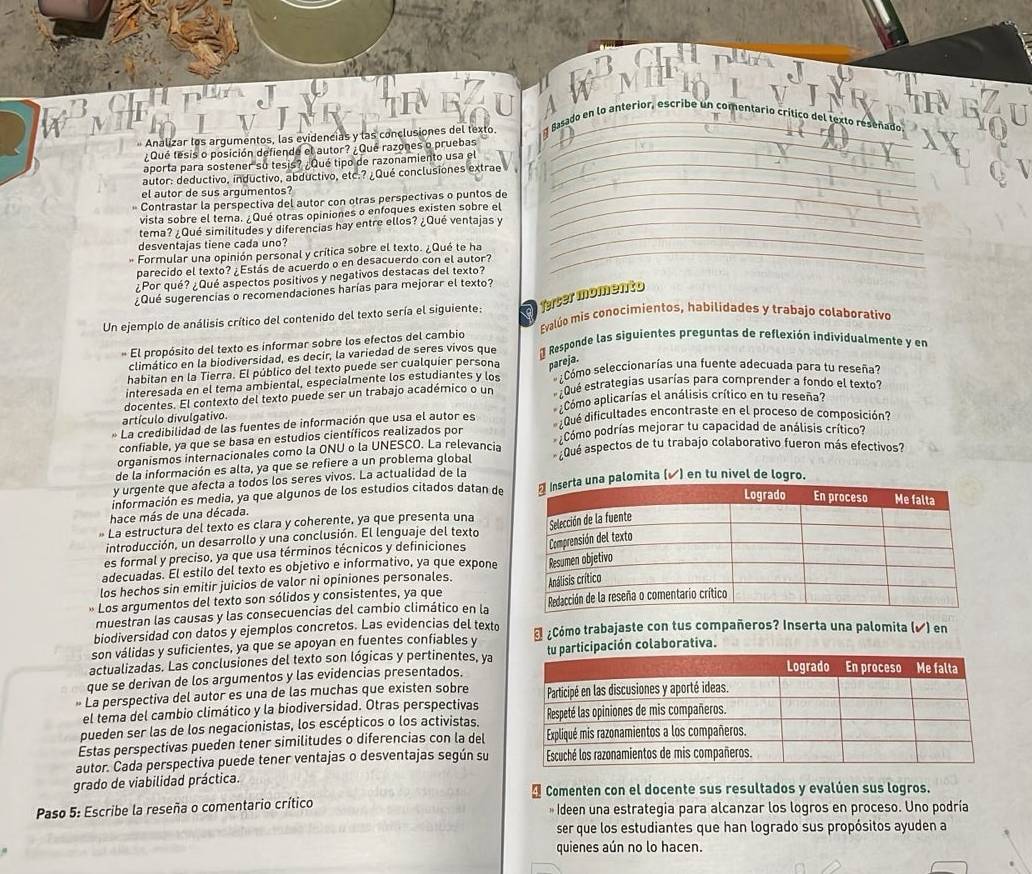 » Analizar los argumentos, las evidencias y las conclusiones del texto.
¿Qué tesis o posición defiende el autor? ¿Qué razones o pruebas
aporta para sostener su tesis? ¿Qué tipo de razonamiento usa el
autor: deductivo, inductivo, abductivo, etc.? ¿Qué conclusiones extrae
el autor de sus argumentos?
» Contrastar la perspectiva del autor con otras perspectivas o puntos de
vista sobre el tema. ¿Qué otras opiniones o enfoques existen sobre el
tema? ¿Qué similitudes y diferencias hay entre ellos? ¿Qué ventajas y
desventajas tiene cada uno?
» Formular una opinión personal y crítica sobre el texto. ¿Qué te ha
parecido el texto? ¿Estás de acuerdo o en desacuerdo con el autor?
¿Por qué? ¿Qué aspectos positivos y negativos destacas del texto?
¿Qué sugerencias o recomendaciones harías para mejorar el texto?
Un ejemplo de análisis crítico del contenido del texto sería el siguiente:
» El propósito del texto es informar sobre los efectos del cambio
climático en la biodiversidad, es decir, la variedad de seres vivos que
habitan en la Tierra. El público del texto puede ser cualquier persona
interesada en el tema ambiental, especialmente los estudiantes y los
docentes. El contexto del texto puede ser un trabajo académico o un
artículo divulgativo.
» La credibilidad de las fuentes de información que usa el autor es
confiable, ya que se basa en estudios científicos realizados por
organismos internacionales como la ONU o la UNESCO. La relevancia
de la información es alta, ya que se refiere a un problema global
y urgente que afecta a todos los seres vivos. La actualidad de la
información es media, ya que algunos de los estudios citados datan de
hace más de una década.
» La estructura del texto es clara y coherente, ya que presenta una
introducción, un desarrollo y una conclusión. El lenguaje del texto
es formal y preciso, ya que usa términos técnicos y definiciones
adecuadas. El estilo del texto es objetivo e informativo, ya que expone
los hechos sin emitir juicios de valor ni opiniones personales.
» Los argumentos del texto son sólidos y consistentes, ya que
muestran las causas y las consecuencias del cambio climático en la
biodiversidad con datos y ejemplos concretos. Las evidencias del texto
son válidas y suficientes, ya que se apoyan en fuentes confiables y
actualizadas. Las conclusiones del texto son lógicas y pertinentes, ya
que se derivan de los argumentos y las evidencias presentados.
» La perspectiva del autor es una de las muchas que existen sobre
el tema del cambio climático y la biodiversidad. Otras perspectivas
pueden ser las de los negacionistas, los escépticos o los activistas.
Estas perspectivas pueden tener similitudes o diferencias con la del
autor. Cada perspectiva puede tener ventajas o desventajas según su
grado de viabilidad práctica.
Paso 5: Escribe la reseña o comentario crítico
Basado en lo anterior, escribe un comentario crítico del texto reseñado.
Tercer momento
Evalúo mis conocimientos, habilidades y trabajo colaborativo
1 Responde las siguientes preguntas de reflexión individualmente y en
pareja.
» ¿Cómo seleccionarías una fuente adecuada para tu reseña?
» ¿Qué estrategias usarías para comprender a fondo el texto?
» ¿Cómo aplicarías el análisis crítico en tu reseña?
» ¿Qué dificultades encontraste en el proceso de composición?
» ¿Cómo podrías mejorar tu capacidad de análisis crítico?
» ¿Qué aspectos de tu trabajo colaborativo fueron más efectivos?
2 Inserta una palomita (✔) en tu nivel de logro.
Logrado En proceso Me falta
Selección de la fuente
Comprensión del texto
Resumen objetivo
Análisis crítico
Redacción de la reseña o comentario crítico
3 ¿Cómo trabajaste con tus compañeros? Inserta una palomita (✔) en
tu participación colaborativa.
Logrado En proceso Me falta
Participé en las discusiones y aporté ideas.
Respeté las opiniones de mis compañeros.
Expliqué mis razonamientos a los compañeros.
Escuché los razonamientos de mis compañeros.
4 Comenten con el docente sus resultados y evalúen sus logros.
» Ideen una estrategia para alcanzar los logros en proceso. Uno podría
ser que los estudiantes que han logrado sus propósitos ayuden a
quienes aún no lo hacen.